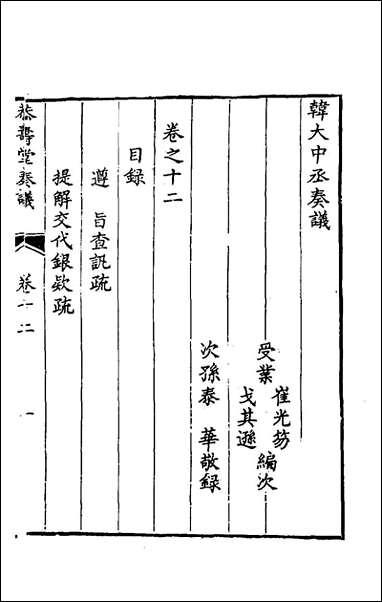 韓大中丞奏議
受業
崔光笏
戈其遜
編次
次孫泰 華敬録
卷之十二
目録
遵 旨查訊疏
提解交代銀欵疏
恭壽堂奏議
卷十二
一